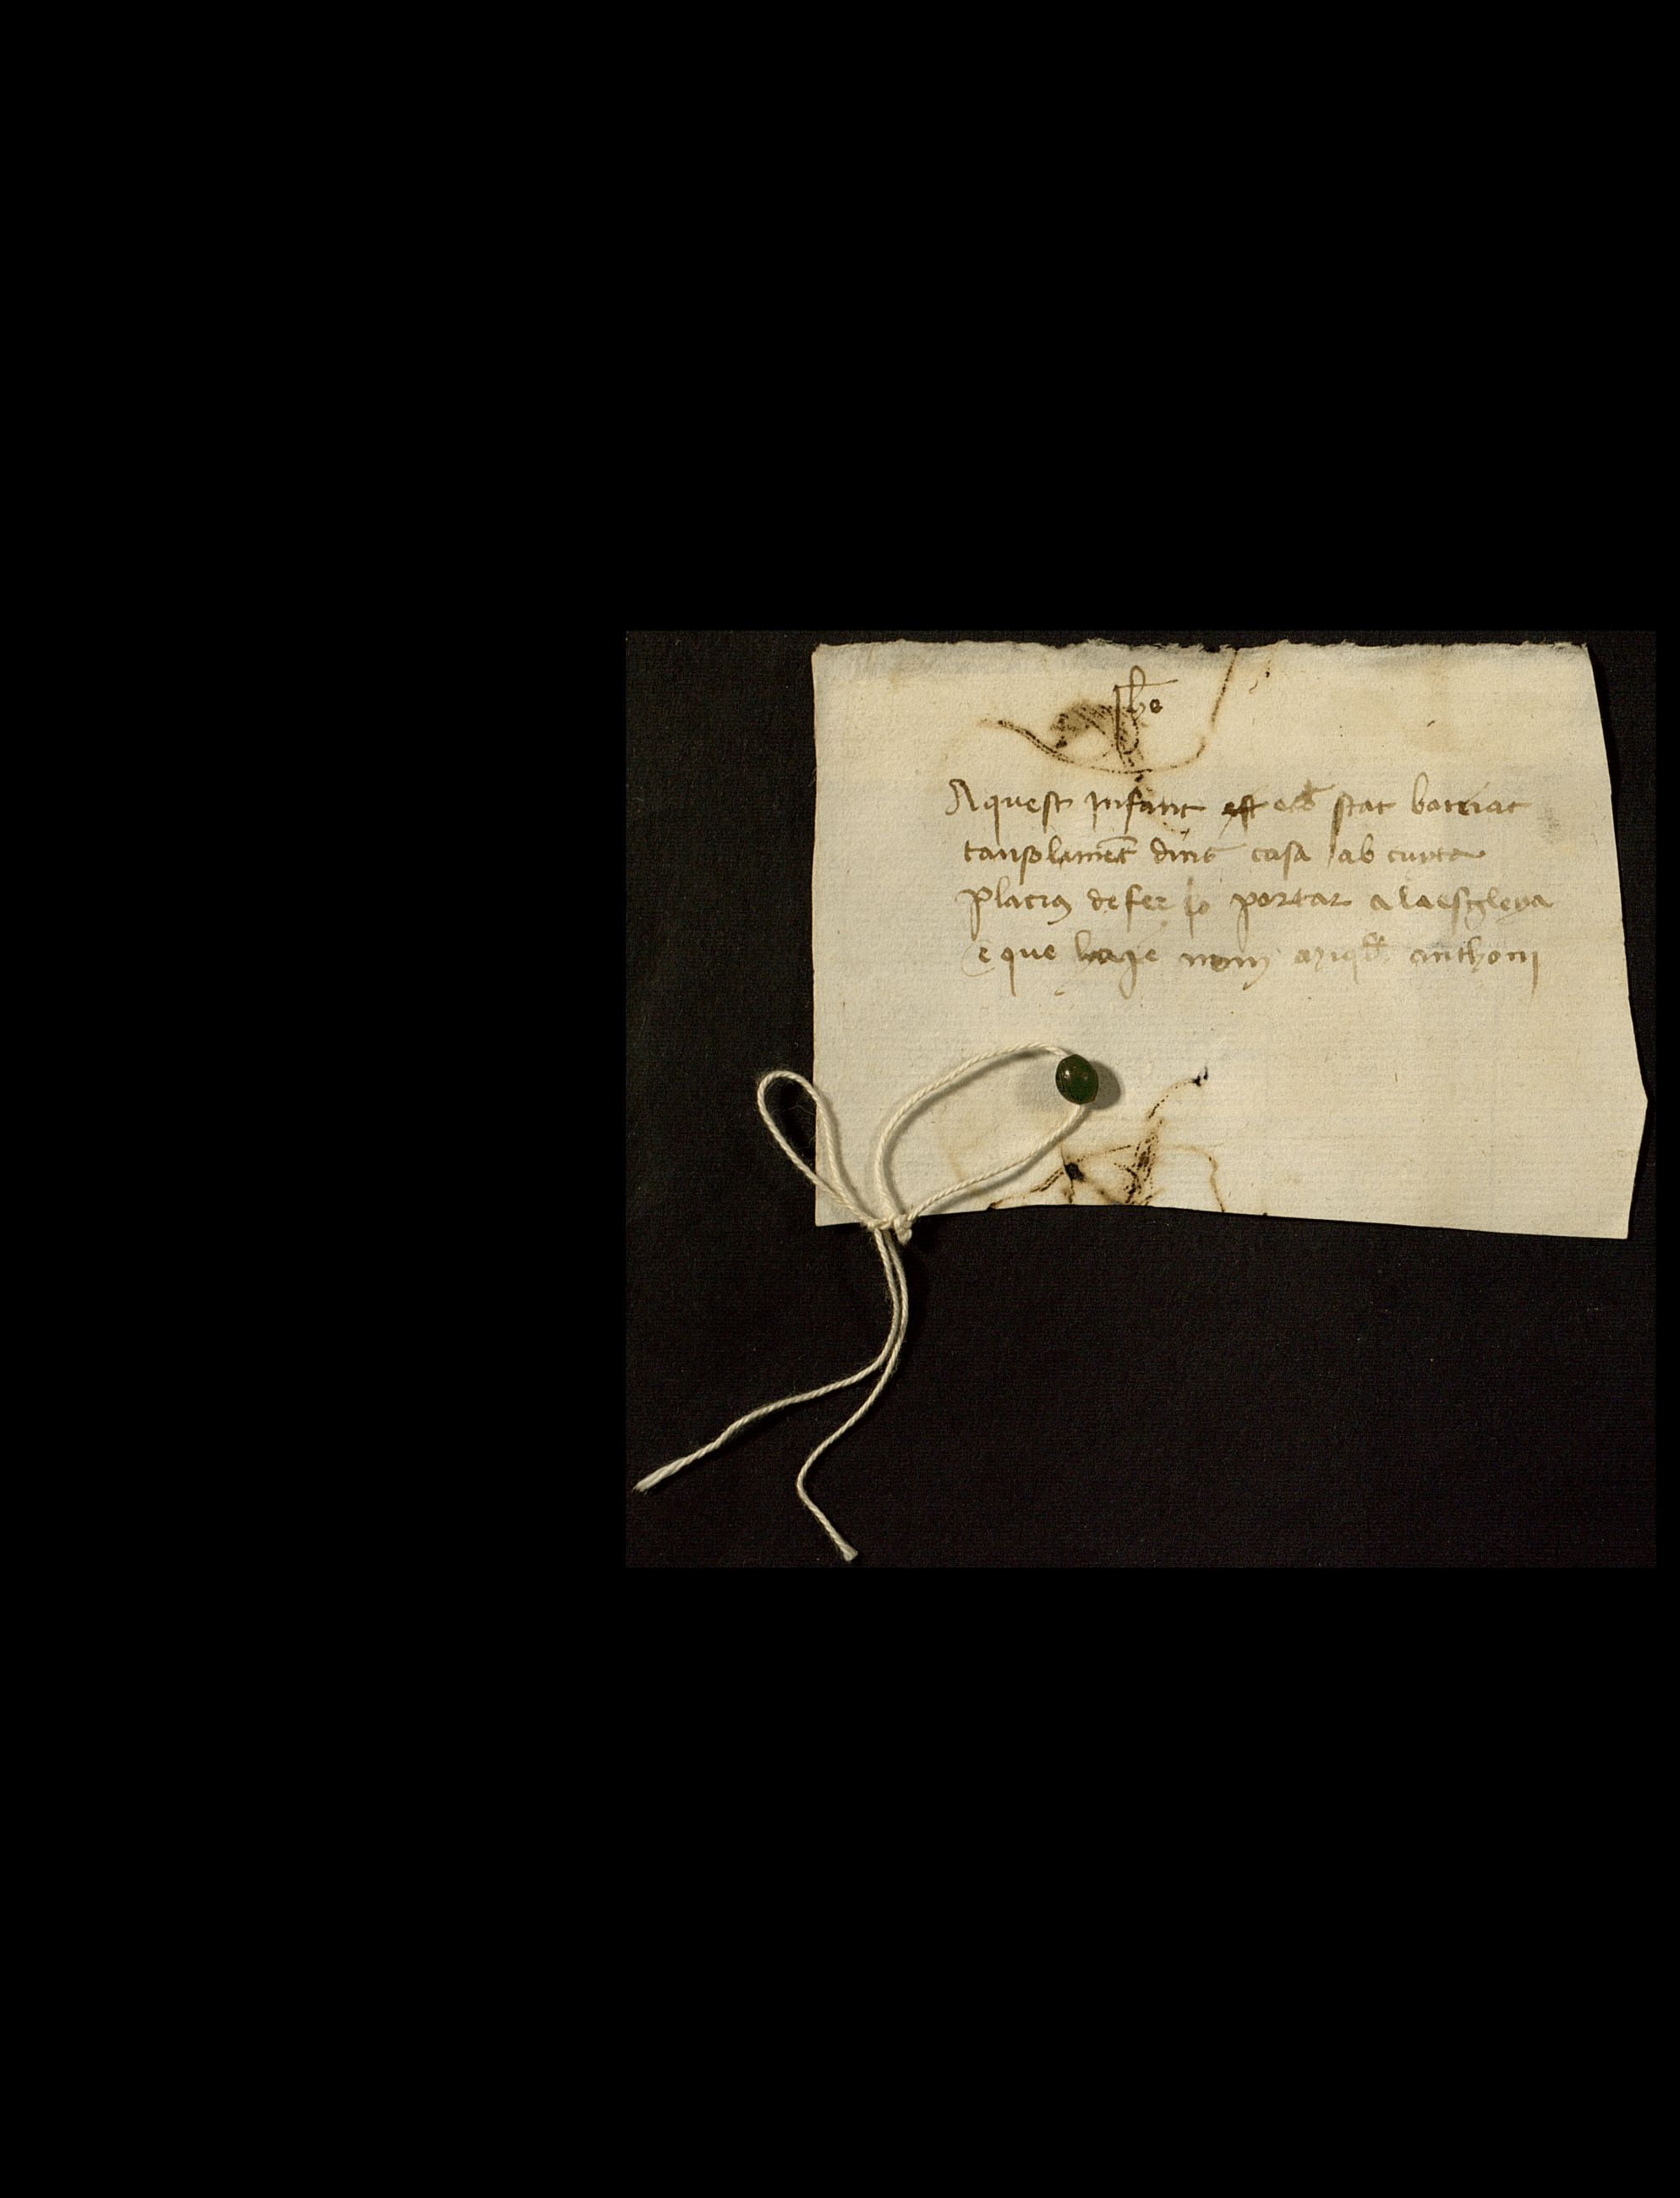 Jhs
Aquest infant est stat batriat
tansolament dins casa ab cuyta
placiaus de fer lo portar a la esgleya
e que haje nom anthoni